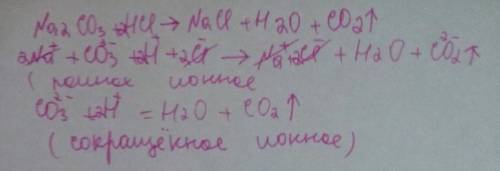 Na2CO3 + 2HCl → NaCl + H2O + CO2↑
2Na⁺ + CO3²⁻ + 2H⁺ + 2Cl⁻ → Na⁺ + 2Cl⁻ + H2O + CO2↑
(полное ионное
CO3²⁻ + 2H⁺ = H2O + CO2↑
(сокращённое ионное)